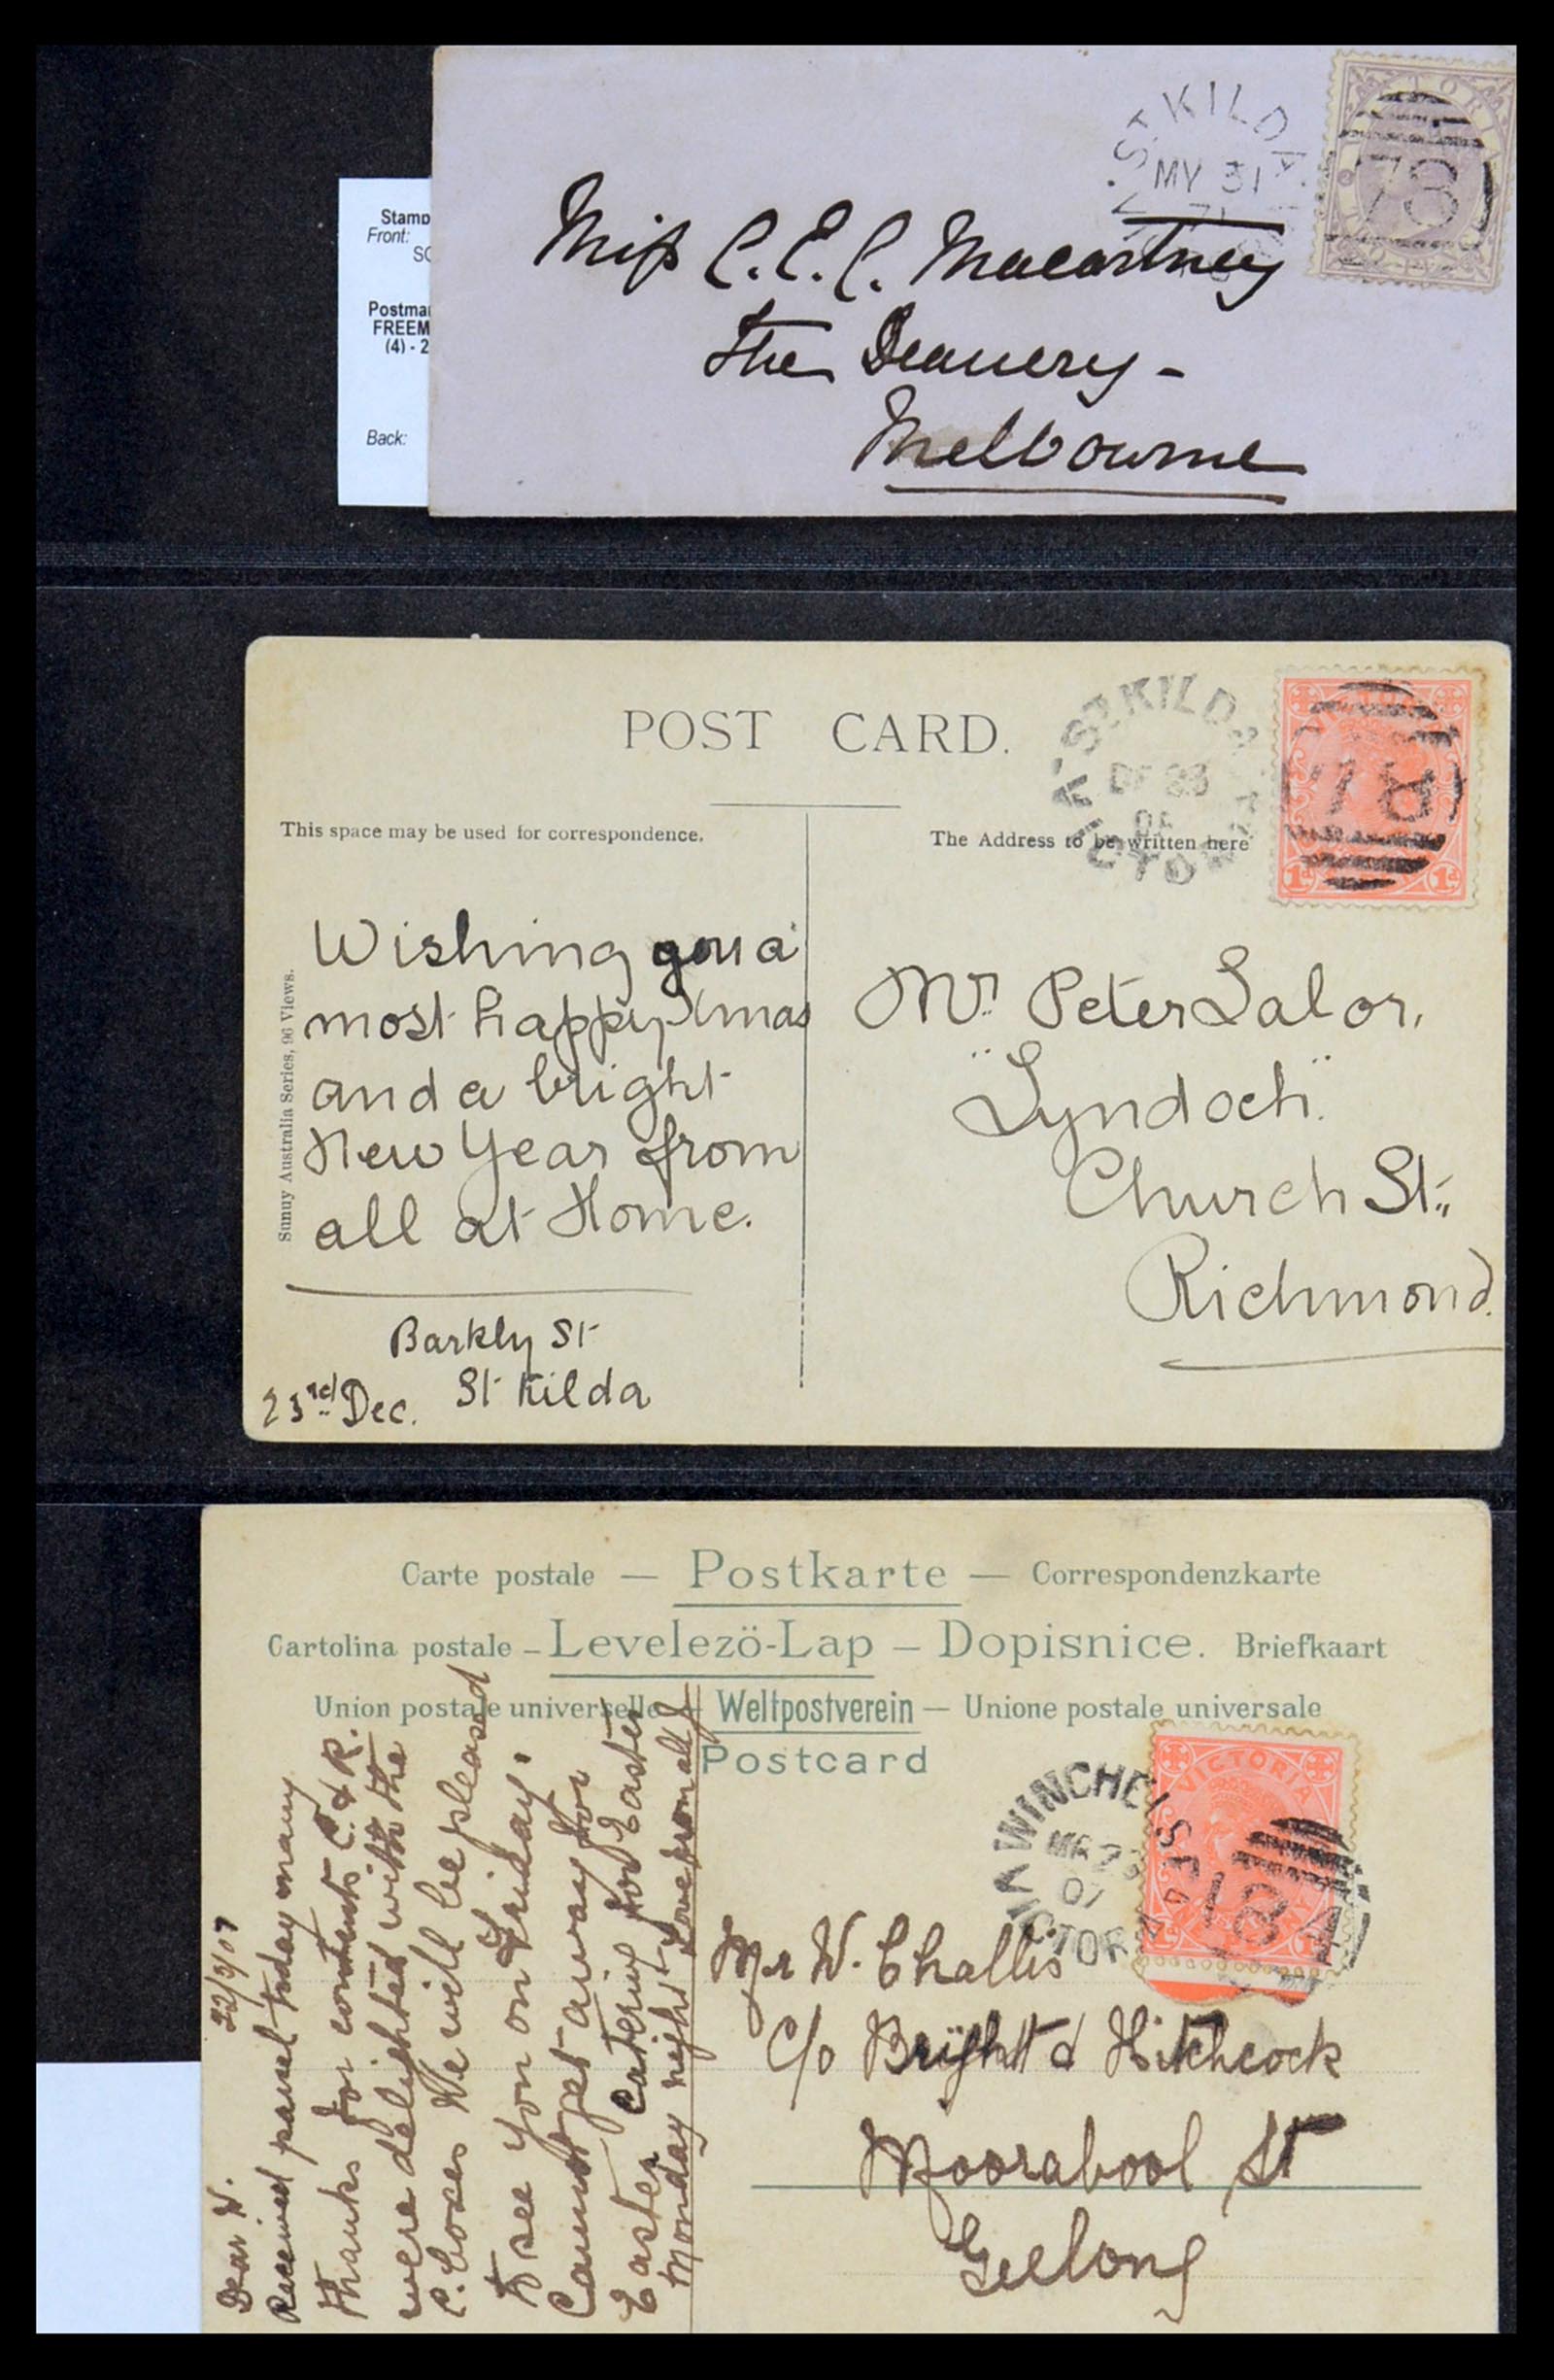 Stamp
Front:
SC
Postmar
FREEM
(4) - 2
Back:
ST KILDA
MY 31
71
78
Miss C. E. C. Macartney
The Deanery -
Melbourne
POST CARD.
ST KILDA
DE 23
VICTORIA
78
1d 1d
This space may be used for correspondence.
The Address to be written here
Sunny Australia Series, 96 Views.
Wishing you a
most happy Xmas
and a bright
New Year from
all at Home.
Barkly St
St Kilda
23rd Dec.
Mr. Peter Lalor,
"Lyndoch"
Church St.,
Richmond.
Carte postale — Postkarte — Correspondenzkarte
Cartolina postale – Levelezö-Lap – Dopisnice. Briefkaart
Union postale universelle — Weltpostverein — Unione postale universale
Postcard
WINCHELSEA
MR 23
07
VICTORIA
VICTORIA
1d
22/3/07
Dear W.
Received parcel today many
thanks for contents C. & R.
were delighted with the
C. boxes We will be pleased
to see you on Friday.
Cannot get away for
Easter Catering for Easter
Monday night Love from all J
Mr W. Challis
C/o Bright & Hitchcock
Moorabool St
Geelong